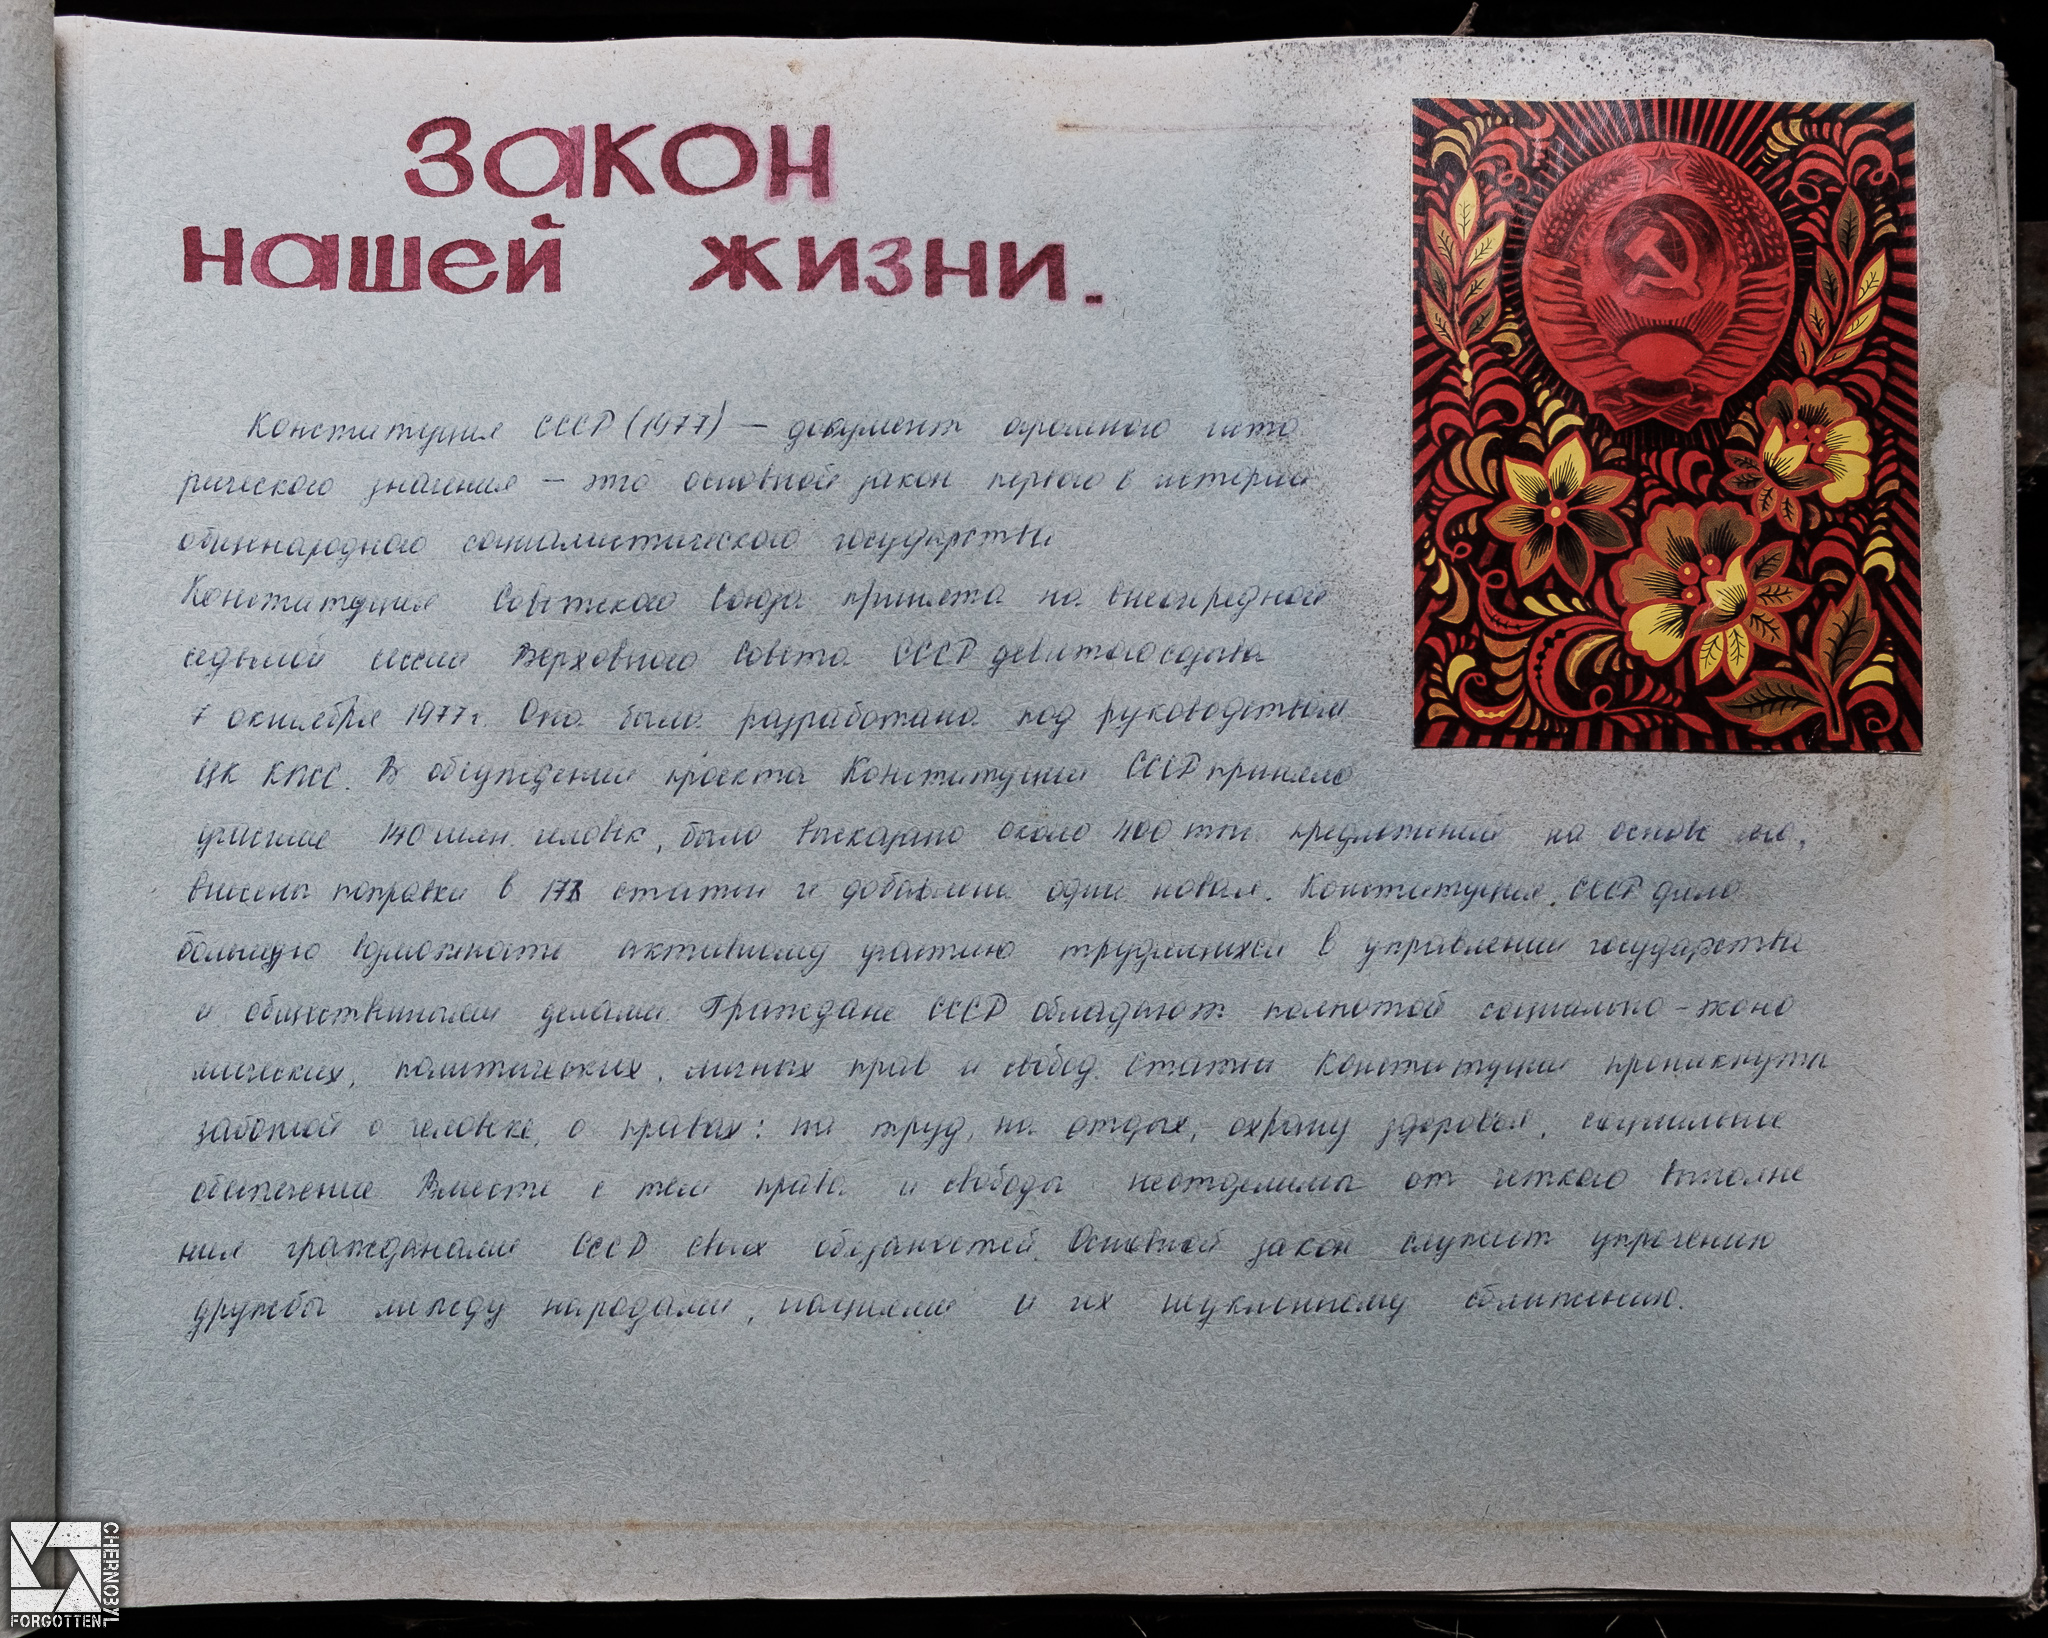 Закон
нашей жизни.
Конституция СССР (1977) — документ огромного исто
рического значения — это основной закон первого в истории
общенародного социалистического государства
Конституция Советского Союза принята на внеочередной
седьмой сессии Верховного Совета СССР девятого созыва
7 октября 1977 г. Она была разработана под руководством
ЦК КПСС. В обсуждении проекта Конституции СССР приняло
участие 140 млн. человек, было высказано около 400 тыс. предложений на основе его,
внесены поправки в статьи и добавлена одна новая. Конституция СССР дала
большую возможность активному участию трудящихся в управлении государства
и общественными делами. Граждане СССР обладают полнотой социально-эконо
мических, политических, личных прав и свобод. Статьи Конституции проникнуты
заботой о человеке, о правах: на труд, на отдых, охрану здоровья, социальное
обеспечение. Вместе с тем права и свободы неотделимы от четкого выполне
ния гражданами СССР своих обязанностей. Основной закон служит упрочению
дружбы между народами, нациями и их неуклонному сближению.
CHERNOBYL
FORGOTTEN